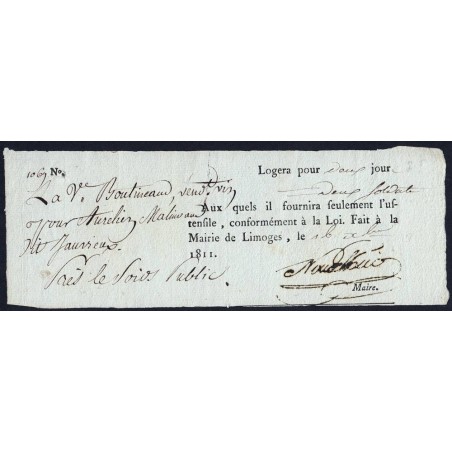 1069 No.
La Ve. Boutineaud vendt. vin
pour Aurelien
dit
Près le Poids Public
Logera pour deux jours
deux soldats
Aux quels il fournira seulement l'us-
tensile, conformément à la Loi. Fait à la
Mairie de Limoges, le 16
1811.
Maire.